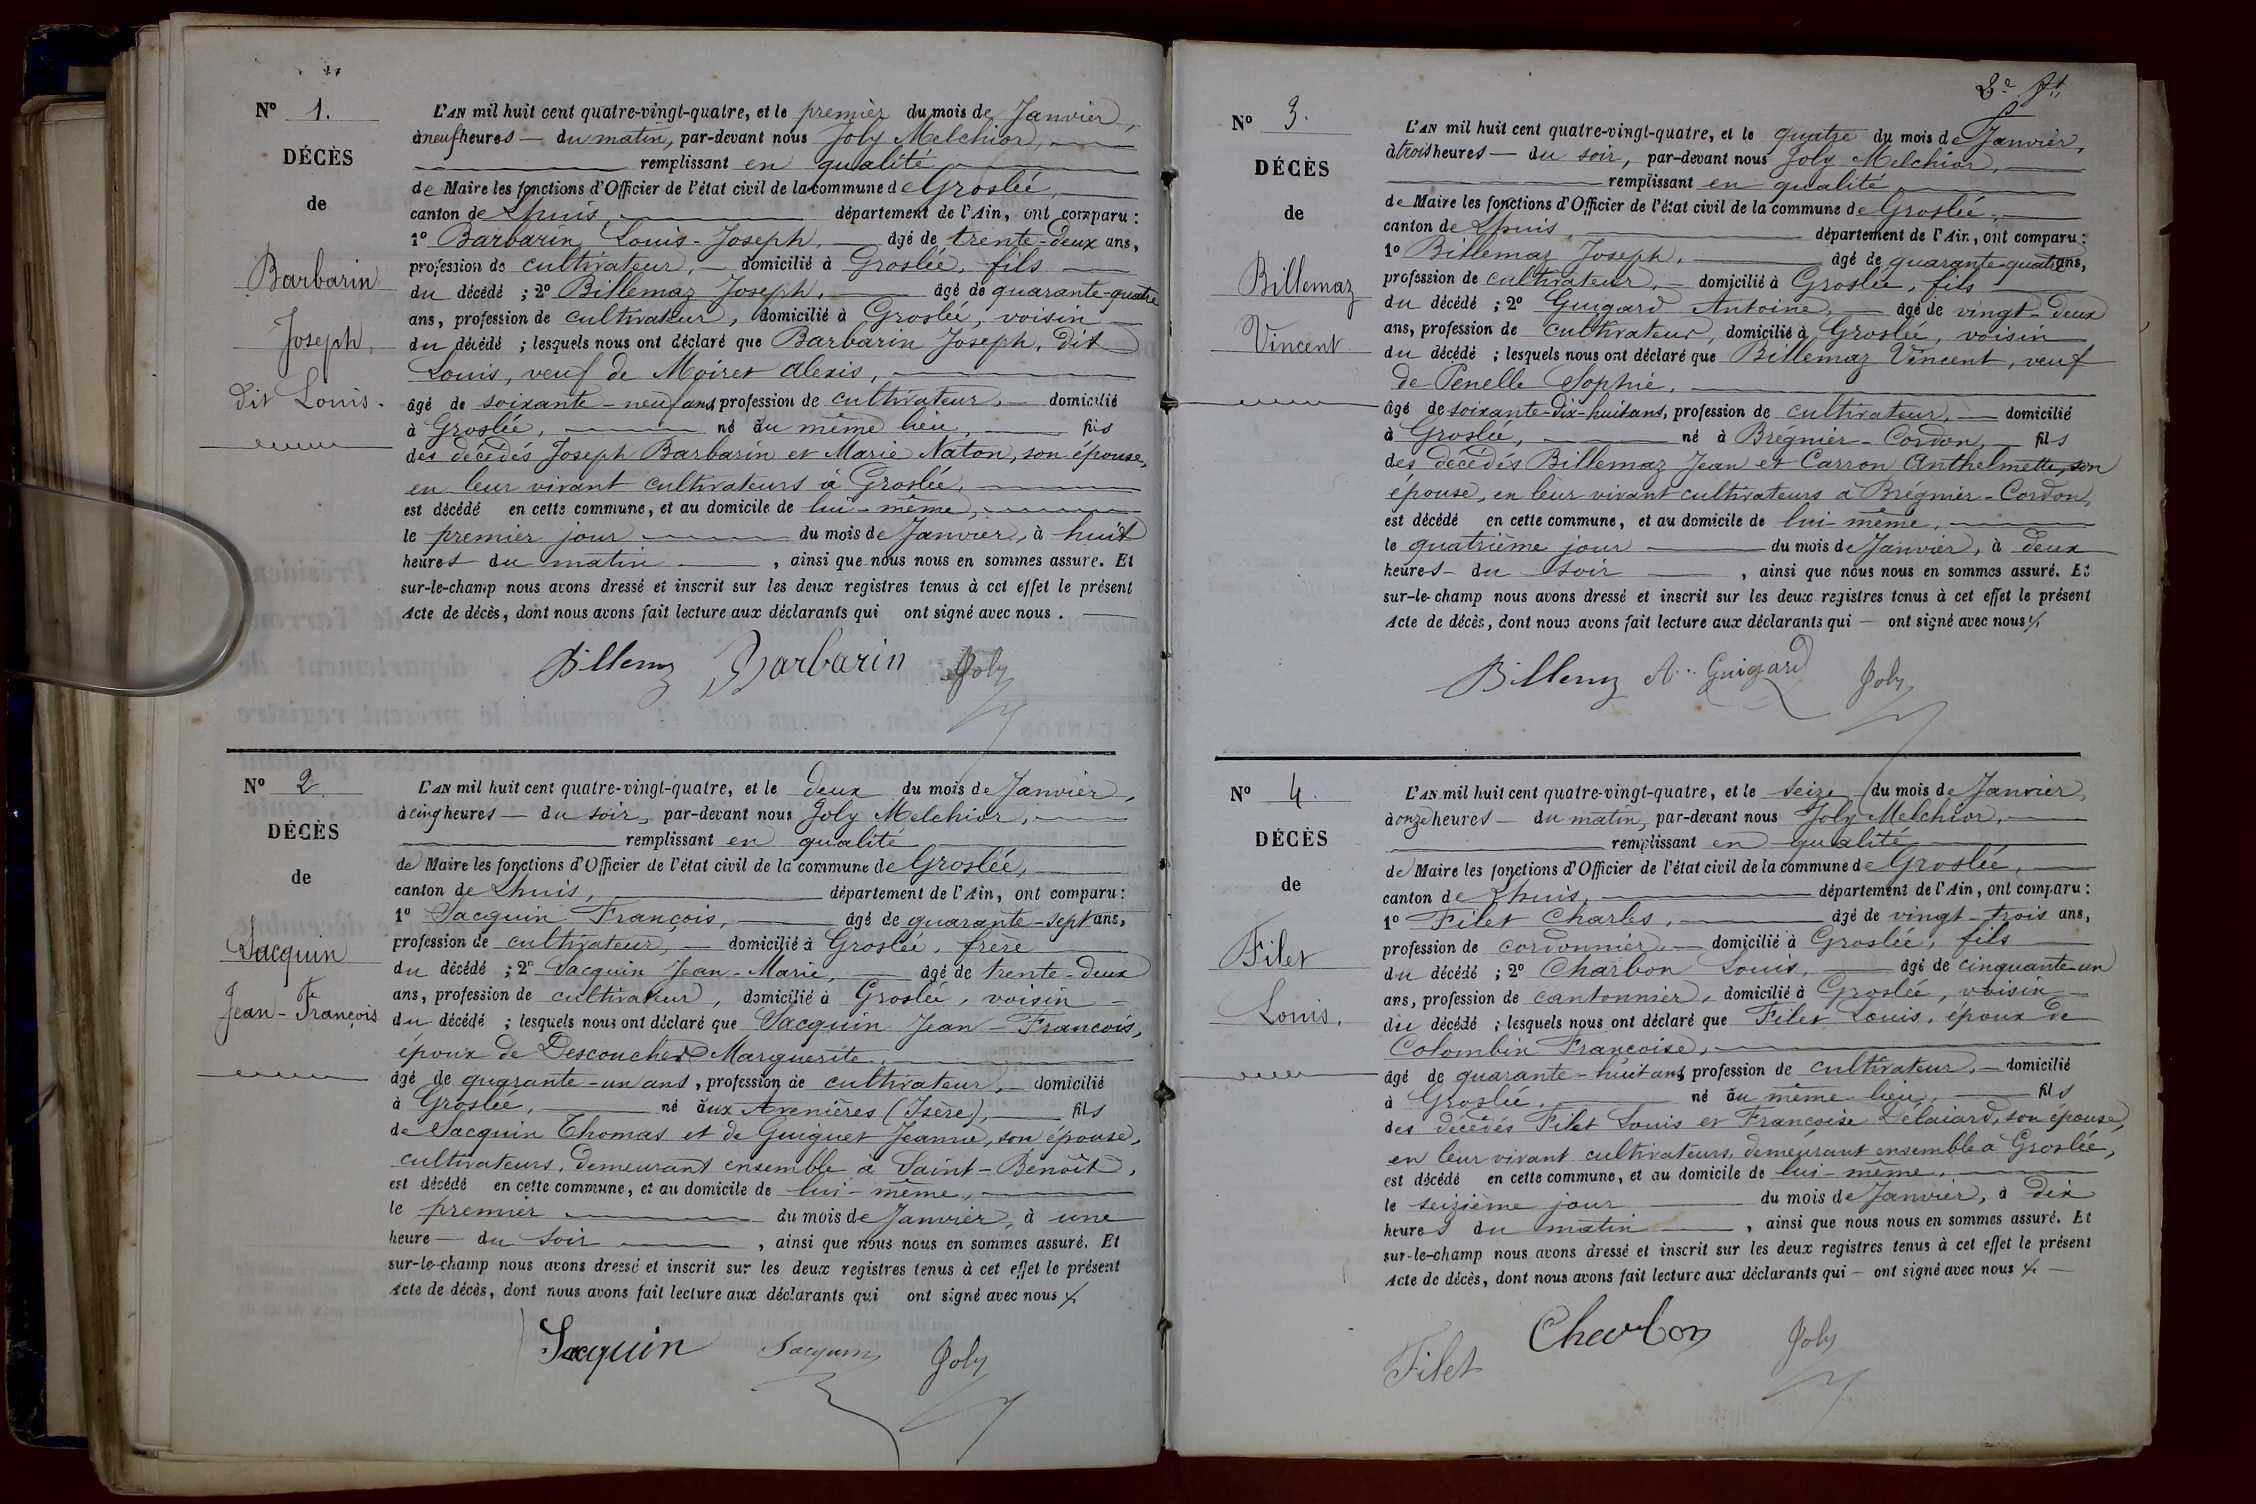 N° 1.
DÉCÈS
de
Barbarin
Joseph,
dit Louis.
L'AN mil huit cent quatre-vingt-quatre, et le premier du mois de Janvier,
à neuf heures — du matin, par-devant nous Joly Melchior,
remplissant en qualité
de Maire les fonctions d'Officier de l'état civil de la commune de Groslée,
canton de Lhuis, département de l'Ain, ont comparu :
1° Barbarin Louis-Joseph, âgé de trente-deux ans,
profession de cultivateur, — domicilié à Groslée, fils
du décédé ; 2° Billemaz Joseph, âgé de quarante-quatre
ans, profession de cultivateur, domicilié à Groslée, voisin
du décédé ; lesquels nous ont déclaré que Barbarin Joseph, dit
Louis, veuf de Moiret Alexis,
âgé de soixante-neuf ans, profession de cultivateur, — domicilié
à Groslée, né au même lieu, fils
des décédés Joseph Barbarin et Marie Naton, son épouse,
en leur vivant cultivateurs à Groslée,
est décédé en cette commune, et au domicile de lui-même,
le premier jour du mois de Janvier, à huit
heures du matin, ainsi que nous nous en sommes assuré. Et
sur-le-champ nous avons dressé et inscrit sur les deux registres tenus à cet effet le présent
Acte de décès, dont nous avons fait lecture aux déclarants qui ont signé avec nous.
Billemz Barbarin Joly
N° 2.
DÉCÈS
de
Jacquin
Jean-François
L'AN mil huit cent quatre-vingt-quatre, et le deux du mois de Janvier,
à cinq heures — du soir, par-devant nous Joly Melchior,
remplissant en qualité
de Maire les fonctions d'Officier de l'état civil de la commune de Groslée,
canton de Lhuis, département de l'Ain, ont comparu :
1° Jacquin François, âgé de quarante-sept ans,
profession de cultivateur, — domicilié à Groslée, frère
du décédé ; 2° Jacquin Jean-Marie, âgé de trente-deux
ans, profession de cultivateur, domicilié à Groslée, voisin —
du décédé ; lesquels nous ont déclaré que Jacquin Jean-François,
époux de Descouches Marguerite,
âgé de quarante-un ans, profession de cultivateur, — domicilié
à Groslée, né aux Avenières (Isère), fils
de Jacquin Thomas et de Guiguet Jeanne, son épouse,
cultivateurs, demeurant ensemble à Saint-Benoît,
est décédé en cette commune, et au domicile de lui-même,
le premier du mois de Janvier, à une
heure — du soir, ainsi que nous nous en sommes assuré. Et
sur-le-champ nous avons dressé et inscrit sur les deux registres tenus à cet effet le présent
Acte de décès, dont nous avons fait lecture aux déclarants qui ont signé avec nous
Jacquin Jacquin Joly
2e ft
N° 3.
DÉCÈS
de
Billemaz
Vincent
L'AN mil huit cent quatre-vingt-quatre, et le quatre du mois de Janvier,
à trois heures — du soir, par-devant nous Joly Melchior,
remplissant en qualité
de Maire les fonctions d'Officier de l'état civil de la commune de Groslée,
canton de Lhuis, département de l'Ain, ont comparu :
1° Billemaz Joseph, âgé de quarante-quatre ans,
profession de cultivateur, — domicilié à Groslée, fils
du décédé ; 2° Guigard Antoine, — âgé de vingt-deux
ans, profession de cultivateur, domicilié à Groslée, voisin
du décédé ; lesquels nous ont déclaré que Billemaz Vincent, veuf
de Penelle Sophie,
âgé de soixante-dix-huit ans, profession de cultivateur, — domicilié
à Groslée, né à Brégnier-Cordon, fils
des décédés Billemaz Jean et Carron Anthelmette, son
épouse, en leur vivant cultivateurs à Brégnier-Cordon,
est décédé en cette commune, et au domicile de lui-même,
le quatrième jour du mois de Janvier, à deux
heures — du soir, ainsi que nous nous en sommes assuré. Et
sur-le-champ nous avons dressé et inscrit sur les deux registres tenus à cet effet le présent
Acte de décès, dont nous avons fait lecture aux déclarants qui — ont signé avec nous
Billemz A. Guigard Joly
N° 4.
DÉCÈS
de
Filet
Louis.
L'AN mil huit cent quatre-vingt-quatre, et le seize du mois de Janvier,
à onze heures — du matin, par-devant nous Joly Melchior,
remplissant en qualité
de Maire les fonctions d'Officier de l'état civil de la commune de Groslée,
canton de Lhuis, département de l'Ain, ont comparu :
1° Filet Charles, âgé de vingt-trois ans,
profession de cordonnier, — domicilié à Groslée, fils
du décédé ; 2° Charbon Louis, âgé de cinquante-un
ans, profession de cantonnier, domicilié à Groslée, voisin —
du décédé ; lesquels nous ont déclaré que Filet Louis, époux de
Colombin Françoise,
âgé de quarante-huit ans, profession de cultivateur, — domicilié
à Groslée, né au même lieu, fils
des décédés Filet Louis et Françoise Délaiard, son épouse,
en leur vivant cultivateurs, demeurant ensemble à Groslée,
est décédé en cette commune, et au domicile de lui-même,
le seizième jour du mois de Janvier, à dix
heures du matin, ainsi que nous nous en sommes assuré. Et
sur-le-champ nous avons dressé et inscrit sur les deux registres tenus à cet effet le présent
Acte de décès, dont nous avons fait lecture aux déclarants qui — ont signé avec nous
Filet Charbon Joly